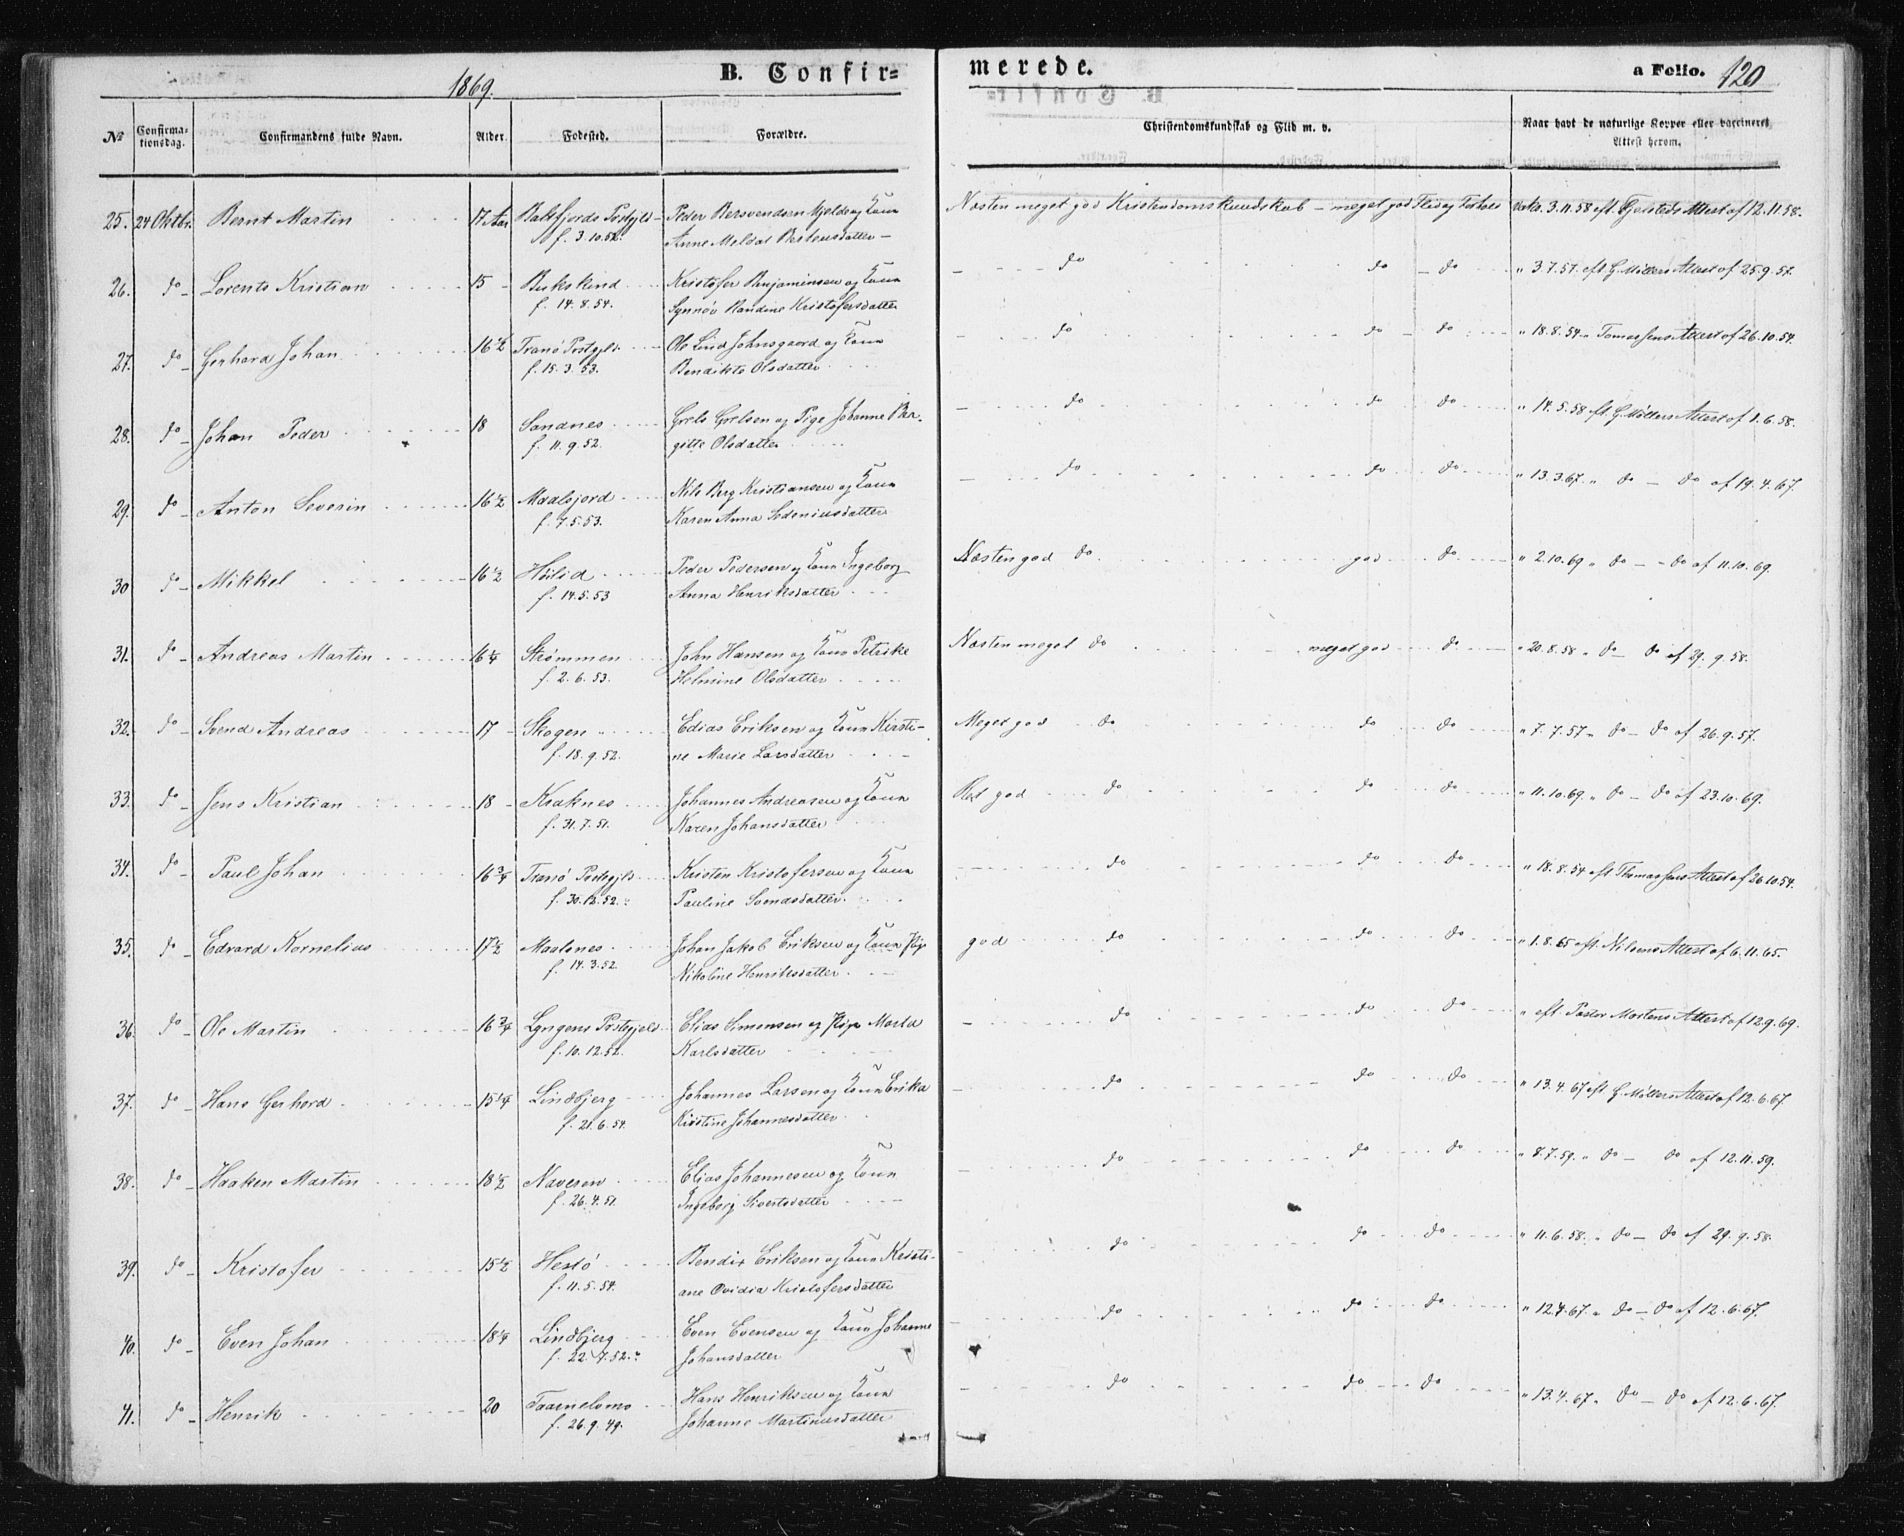 1869.
B. Confir=
merede.
a Folio. 120
No
Confirma-
tionsdag.
Confirmandens fulde Navn.
Alder.
Fødested.
Forældre.
Christendomskundskab og Flid m. v.
Naar havt de naturlige Kopper eller vaccineret,
Attest herom.
25. 24 Oktbr. Bernt Martin 17 Aar Balsfjords Præstgjld Peder Bersvendsen Kjelde og Kone Næsten meget god Kristendomskundskab - meget god Flid og Forhold vaks. 3.11.58 eft. Attest af 12.11.58.
f. 3.10.52. Anne Meldal datter
26. do Lorents Kristian 15 Bukskind Kristofer Benjaminsen og Kone do do do " 3.7.57. eft. G. Møllers Attest af 25.9.57.
f. 14.8.54. Synnøv Randine Kristofersdatter
27. do Gerhard Johan 16½ Tranø Præstgjld Ole Lind Johnsgaard og Kone do do do " 18.8.54 " Tomassens Attest af 26.10.54.
f. 15.3.53. Bendikte Olsdatter
28. do Johan Peder 18 Sandnes og Pige Johanne Ber- do do do " 14.5.58 eft. G. Møllers Attest af 1.6.58.
f. 11.9.52. gitte Olsdatter
29. do Anton Severin 16½ Maalsjord Nils Berg Kristiansen og Kone do do do " 13.3.67. " do - do af 14.4.67.
f. 7.5.53. Karen Anna Sedeniusdatter
30 do Mikkel 16½ Høilid Peder Pedersen og Kone Ingeborg Næsten god do god do " 2.10.69 " do - do af 11.10.69.
f. 14.5.53 Anna Henriksdatter
31. do Andreas Martin 16¼ Strømmen John Hansen og Kone Petrike Næsten meget do meget god do " 20.8.58 " do - do af 29.9.58.
f. 2.6.53. Helmine Olsdatter
32. do Svend Andreas 17 Skogen Edias Eriksen og Kone Kirsti- Meget god do do do " 7.7.57 " do - do af 26.9.57.
f. 18.9.52. ne Marie Larsdatter
33. do Jens Kristian 18 Kraknes Johannes Andreasen og Kone Ret god do do do " 11.10.69. " do - do af 23.10.69.
f. 31.7.51. Karen Johansdatter
34. do Paul Johan 16¾ Tranø Præstgjld Kristen Kristofersen og Kone do do do " 18.8.54 eft Thomassens Attest af 26.10.54.
f. 30.12.52. Pauline Svendsdatter
35. do Edvard Kornelius 17½ Maalsnes Johan Jakob Eriksen og Kone god do do do " 1.8.65 eft. Nilsens Attest af 6.11.65.
f. 14.3.52 Nikoline Henriksdatter
36. do Ole Martin 16¾ Lyngens Præstgjeld Elias Simonsen og Pige Marta do do do " eft. Pastor Mortens Attest af 12.9.69.
f. 10.12.52. Karlsdatter
37. do Hans Gerhard 15¼ Lindbjerg Johannes Larsen og Kone Erika do do do " 13.4.67 eft. G. Møllers Attest af 12.6.67.
f. 21.6.54. Kirstine Johannesdatter
38. do Haaken Martin 18½ Naveren Elias Johannesen og Kone do do do " 7.7.59. " do - do af 12.11.59.
f. 26.4.51. Ingeborg Sivertsdatter
39. do Kristofer 15½ Hestø Bendix Eriksen og Kone Kristi- do do do " 11.6.58. " do - do af 29.9.58.
f. 11.5.54. ane Ovidia Kristofersdatter
40. do Even Johan 18¼ Lindbjerg Even Evensen og Kone Johanne do do do " 12.4.67. " do - do af 12.6.67.
f. 22.7.52. Johansdatter
41. do Henrik 20 Taarnelvmo Hans Henriksen og Kone do do do " 13.4.67. " do - do af 12.6.67.
f. 26.9.49. Johanne Martinusdatter